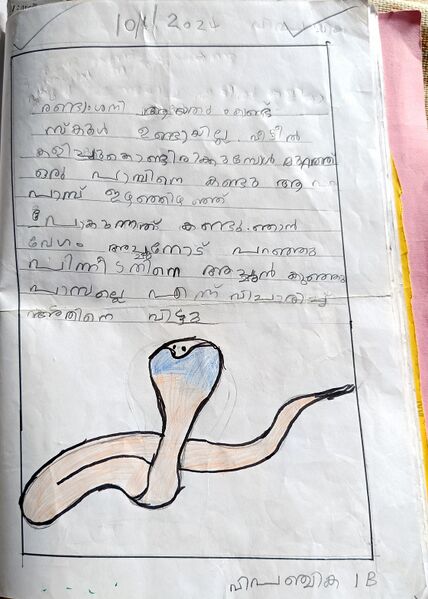 10/1/2024
രണ്ടാംശനി ആയതു കൊണ്ട്
സ്കൂൾ ഉണ്ടായില്ല. വീട്ടിൽ
കളിച്ചുകൊണ്ടിരിക്കുമ്പോൾ മുറ്റത്ത്
ഒരു പാമ്പിനെ കണ്ടു ആ
പാമ്പ് ഇഴഞ്ഞിഴഞ്ഞ്
പോകുന്നത് കണ്ടു. ഞാൻ
വേഗം അച്ഛനോട് പറഞ്ഞു
പിന്നീടതിനെ അച്ഛൻ കുഞ്ഞു
പാമ്പല്ലെ എന്ന് വിചാരിച്ച്
അതിനെ വിട്ടു
വിപഞ്ചിക 1B